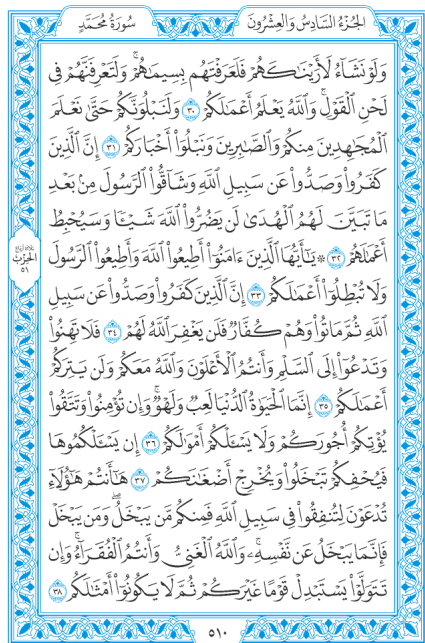 الجُزْءُ السَّادِسُ وَالعِشْرُونَ
سُورَةُ مُحَمَّدٍ
وَلَوْ نَشَآءُ لَأَرَيْنَٰكَهُمْ فَلَعَرَفْتَهُم بِسِيمَٰهُمْ ۚ وَلَتَعْرِفَنَّهُمْ فِى
لَحْنِ ٱلْقَوْلِ ۚ وَٱللَّهُ يَعْلَمُ أَعْمَٰلَكُمْ ٣٠ وَلَنَبْلُوَنَّكُمْ حَتَّىٰ نَعْلَمَ
ٱلْمُجَٰهِدِينَ مِنكُمْ وَٱلصَّٰبِرِينَ وَنَبْلُوَا۟ أَخْبَارَكُمْ ٣١ إِنَّ ٱلَّذِينَ
كَفَرُوا۟ وَصَدُّوا۟ عَن سَبِيلِ ٱللَّهِ وَشَآقُّوا۟ ٱلرَّسُولَ مِنۢ بَعْدِ
مَا تَبَيَّنَ لَهُمُ ٱلْهُدَىٰ لَن يَضُرُّوا۟ ٱللَّهَ شَيْـًٔا وَسَيُحْبِطُ
أَعْمَٰلَهُمْ ٣٢ ۞ يَٰٓأَيُّهَا ٱلَّذِينَ ءَامَنُوٓا۟ أَطِيعُوا۟ ٱللَّهَ وَأَطِيعُوا۟ ٱلرَّسُولَ
وَلَا تُبْطِلُوٓا۟ أَعْمَٰلَكُمْ ٣٣ إِنَّ ٱلَّذِينَ كَفَرُوا۟ وَصَدُّوا۟ عَن سَبِيلِ
ٱللَّهِ ثُمَّ مَاتُوا۟ وَهُمْ كُفَّارٌ فَلَن يَغْفِرَ ٱللَّهُ لَهُمْ ٣٤ فَلَا تَهِنُوا۟
وَتَدْعُوٓا۟ إِلَى ٱلسَّلْمِ وَأَنتُمُ ٱلْأَعْلَوْنَ وَٱللَّهُ مَعَكُمْ وَلَن يَتِرَكُمْ
أَعْمَٰلَكُمْ ٣٥ إِنَّمَا ٱلْحَيَوٰةُ ٱلدُّنْيَا لَعِبٌ وَلَهْوٌ ۚ وَإِن تُؤْمِنُوا۟ وَتَتَّقُوا۟
يُؤْتِكُمْ أُجُورَكُمْ وَلَا يَسْـَٔلْكُمْ أَمْوَٰلَكُمْ ٣٦ إِن يَسْـَٔلْكُمُوهَا
فَيُحْفِكُمْ تَبْخَلُوا۟ وَيُخْرِجْ أَضْغَٰنَكُمْ ٣٧ هَٰٓأَنتُمْ هَٰٓؤُلَآءِ
تُدْعَوْنَ لِتُنفِقُوا۟ فِى سَبِيلِ ٱللَّهِ فَمِنكُم مَّن يَبْخَلُ ۖ وَمَن يَبْخَلْ
فَإِنَّمَا يَبْخَلُ عَن نَّفْسِهِۦ ۚ وَٱللَّهُ ٱلْغَنِىُّ وَأَنتُمُ ٱلْفُقَرَآءُ ۚ وَإِن
تَتَوَلَّوْا۟ يَسْتَبْدِلْ قَوْمًا غَيْرَكُمْ ثُمَّ لَا يَكُونُوٓا۟ أَمْثَٰلَكُم ٣٨
ثلاثة أرباع
الحزب
٥١
٥١٠